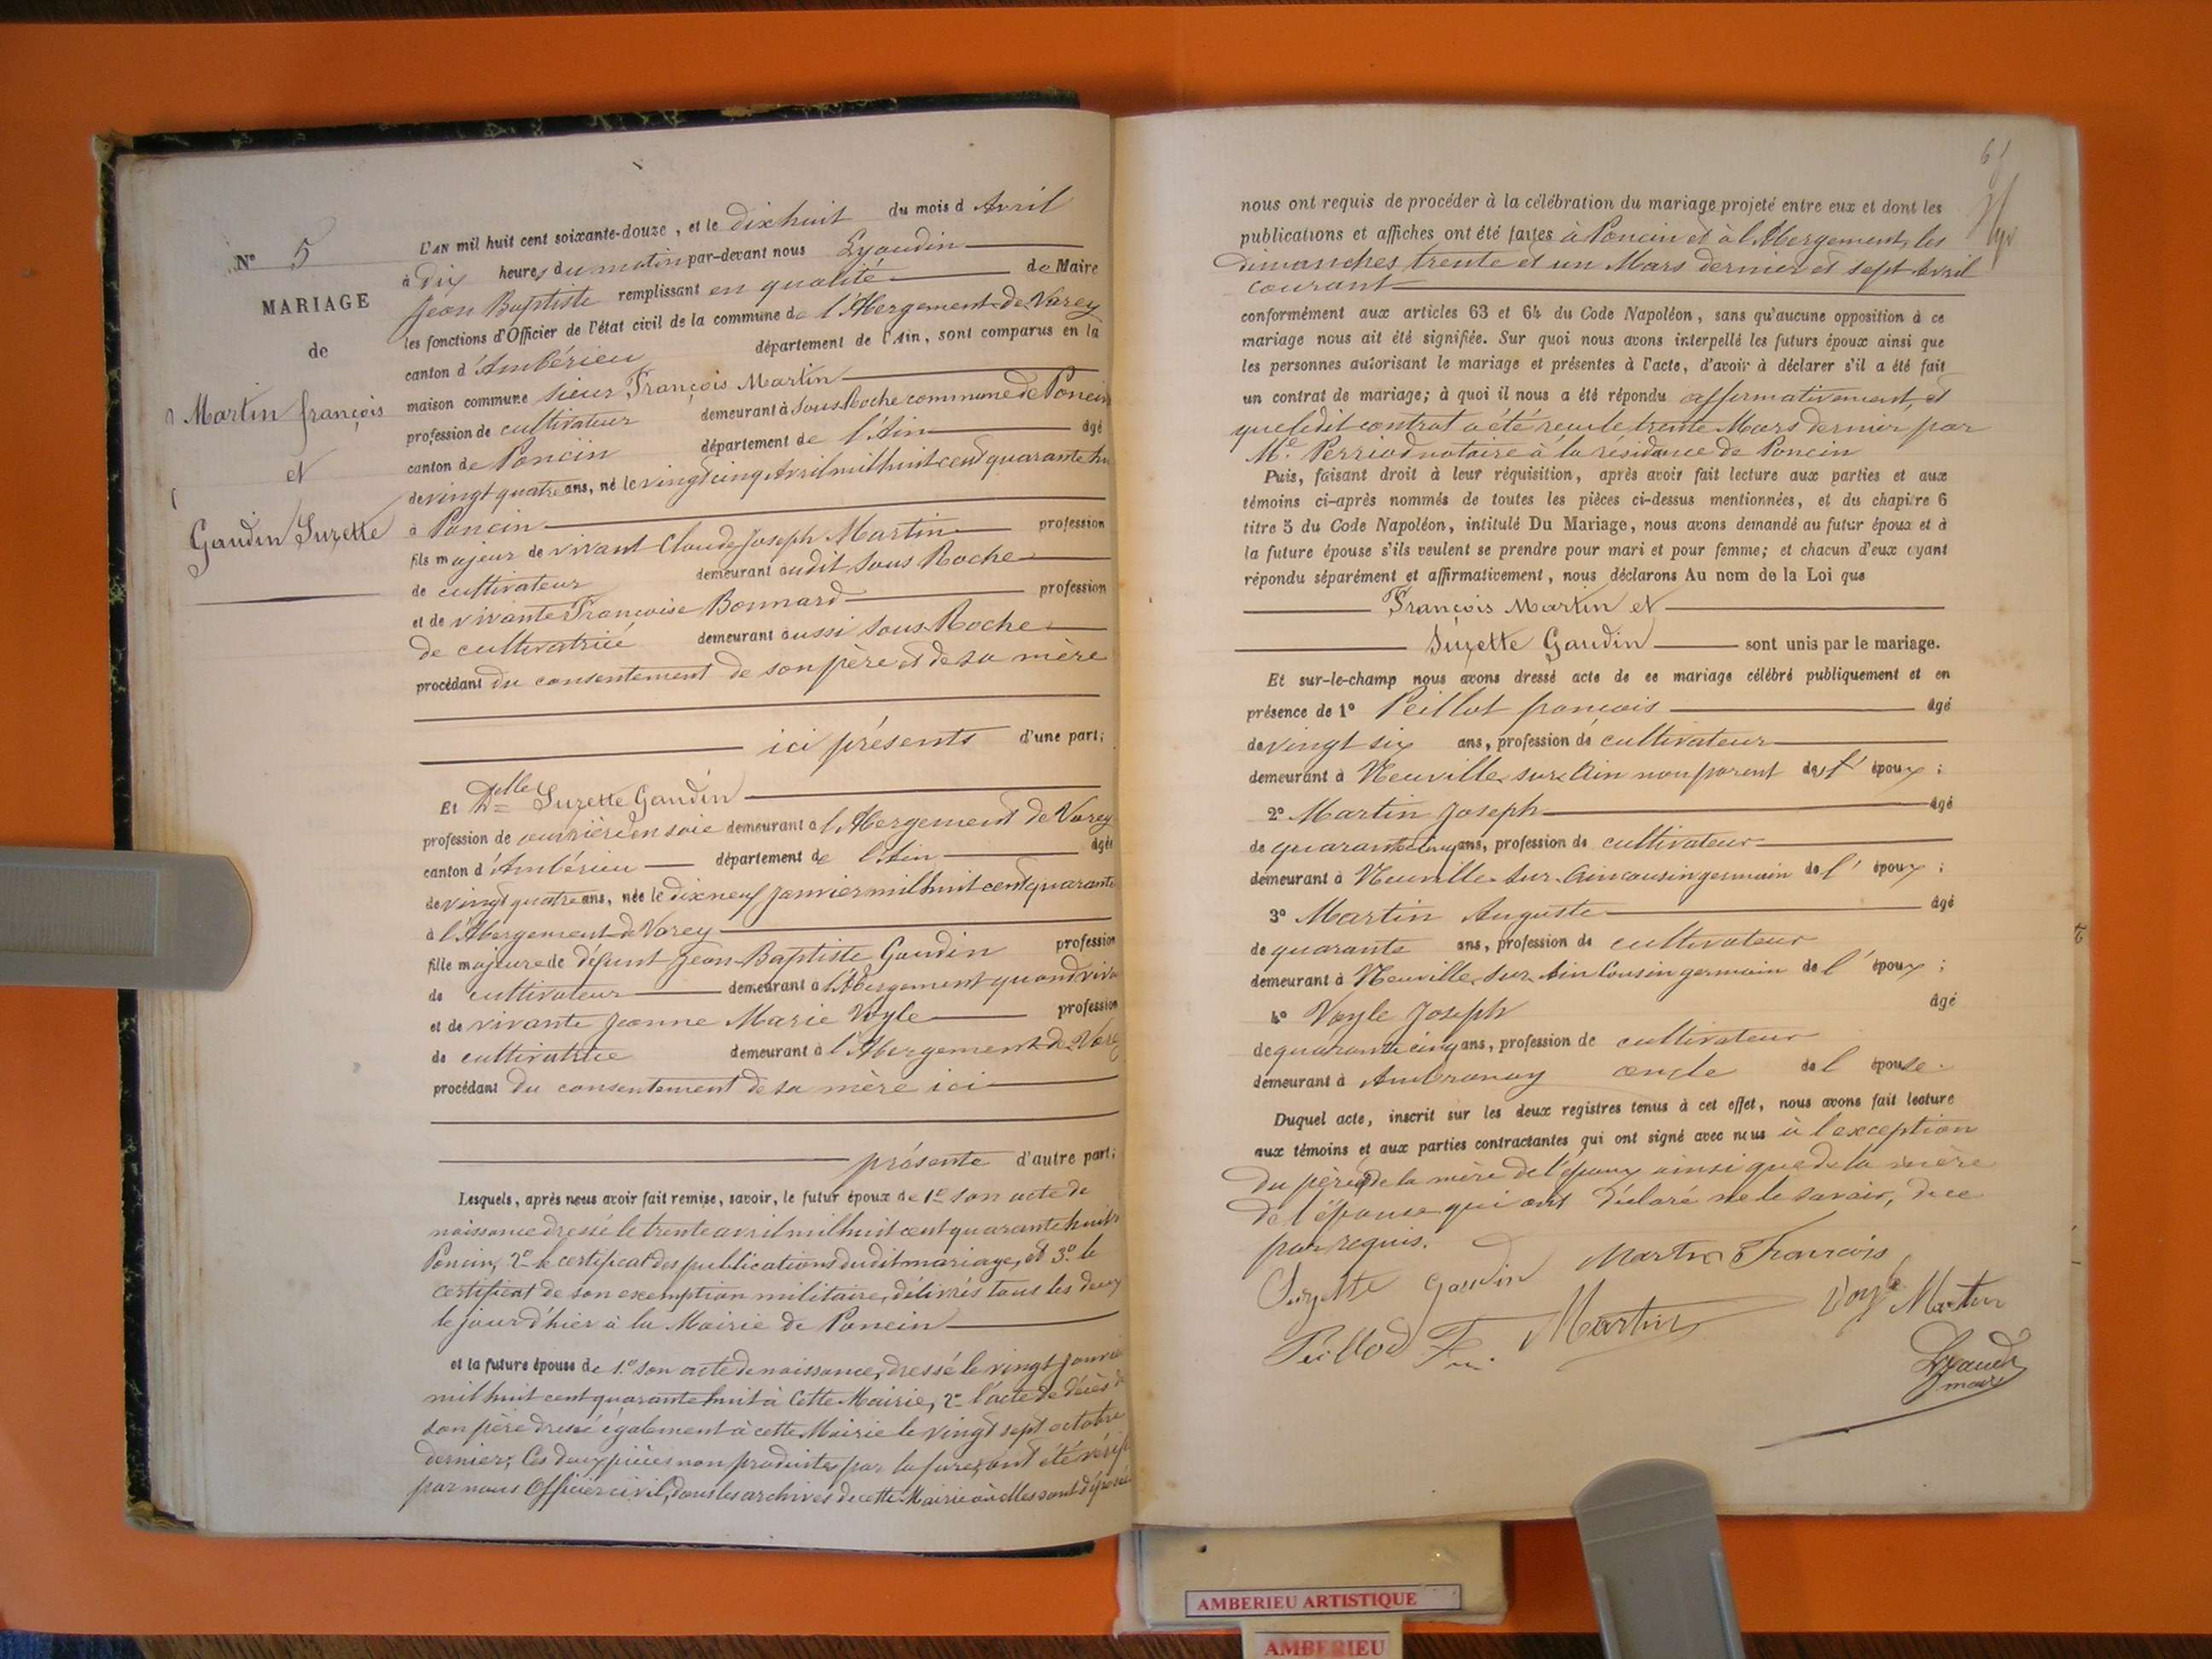 N° 5
MARIAGE
de
Martin françois
et
Gaudin Suzette
L'AN mil huit cent soixante-douze, et le dix huit du mois d'Avril
à dix heures du matin par-devant nous Lyaudin
Jean Baptiste remplissant en qualité de Maire
les fonctions d'Officier de l'état civil de la commune de l'Abergement-de-Varey
canton d'Ambérieu département de l'Ain, sont comparus en la
maison commune sieur François Martin
profession de cultivateur demeurant à Sous Roche commune de Poncin
canton de Poncin département de l'Ain âgé
de vingt quatre ans, né le vingt cinq Avril mil huit cent quarante hu
à Poncin
fils majeur de vivant Claude Joseph Martin profession
de cultivateur demeurant audit Sous Roche
et de vivante Françoise Bonnard profession
de cultivatrice demeurant aussi Sous-Roche
procédant du consentement de son père et de sa mère
ici présents d'une part;
Et Delle Suzette Gaudin
profession de ouvrière en soie demeurant à l'Abergement de Varey
canton d'Ambérieu département de l'Ain âgée
de vingt quatre ans, née le dix neuf Janvier mil huit cent quarante
à l'Abergement-de-Varey
fille majeure de défunt Jean-Baptiste Gaudin profession
de cultivateur demeurant à l'Abergement quand viva
et de vivante Jeanne Marie Voyle profession
de cultivatrice demeurant à l'Abergement-de-Varey
procédant du consentement de sa mère ici
présente d'autre part;
Lesquels, après nous avoir fait remise, savoir, le futur époux de 1° son acte de
naissance dressé le trente avril mil huit cent quarante huit à
Poncin, 2° le certificat des publications dudit mariage, et 3° le
certificat de son exemption militaire, délivrés tous les deux
le jour d'hier à la Mairie de Poncin
et la future épouse de 1° son acte de naissance, dressé le vingt Janvier
mil huit cent quarante huit à Cette Mairie, 2° l'acte de décès de
son père dressé également à cette Mairie le vingt sept octobre
dernier; Ces deux pièces non produites par la future, ont été vérif
par nous Officier civil, dans les archives de cette Mairie où elles sont déposées
61
nous ont requis de procéder à la célébration du mariage projeté entre eux et dont les
publications et affiches ont été faites à Poncin et à l'Abergement, les
dimanches trente et un Mars dernier et sept Avril
courant
conformément aux articles 63 et 64 du Code Napoléon, sans qu'aucune opposition à ce
mariage nous ait été signifiée. Sur quoi nous avons interpellé les futurs époux ainsi que
les personnes autorisant le mariage et présentes à l'acte, d'avoir à déclarer s'il a été fait
un contrat de mariage; à quoi il nous a été répondu affirmativement, et
que ledit contrat a été reçu le trente Mars dernier par
Me Perriod notaire à la résidence de Poncin
Puis, faisant droit à leur réquisition, après avoir fait lecture aux parties et aux
témoins ci-après nommés de toutes les pièces ci-dessus mentionnées, et du chapitre 6
titre 5 du Code Napoléon, intitulé Du Mariage, nous avons demandé au futur époux et à
la future épouse s'ils veulent se prendre pour mari et pour femme; et chacun d'eux ayant
répondu séparément et affirmativement, nous déclarons Au nom de la Loi que
François Martin et
Suzette Gaudin sont unis par le mariage.
Et sur-le-champ nous avons dressé acte de ce mariage célébré publiquement et en
présence de 1° Peillot françois âgé
de vingt six ans, profession de cultivateur
demeurant à Neuville-sur-Ain non parent de l' époux;
2° Martin Joseph âgé
de quarante cinq ans, profession de cultivateur
demeurant à Neuville-sur-Ain cousin germain de l' époux;
3° Martin Auguste âgé
de quarante ans, profession de cultivateur
demeurant à Neuville-sur-Ain Cousin germain de l' époux;
4° Voyle Joseph âgé
de quarante cinq ans, profession de cultivateur
demeurant à Ambronay oncle de l épouse.
Duquel acte, inscrit sur les deux registres tenus à cet effet, nous avons fait lecture
aux témoins et aux parties contractantes qui ont signé avec nous à l'exception
du père de la mère de l'époux ainsi que de la mère
de l'épouse qui ont déclaré ne le savoir, de ce
par requis.
Suzette Gaudin Martin François
Peillod Fr. Martin Voyle Martin
Lyaudin
maire
AMBERIEU ARTISTIQUE
AMBERIEU